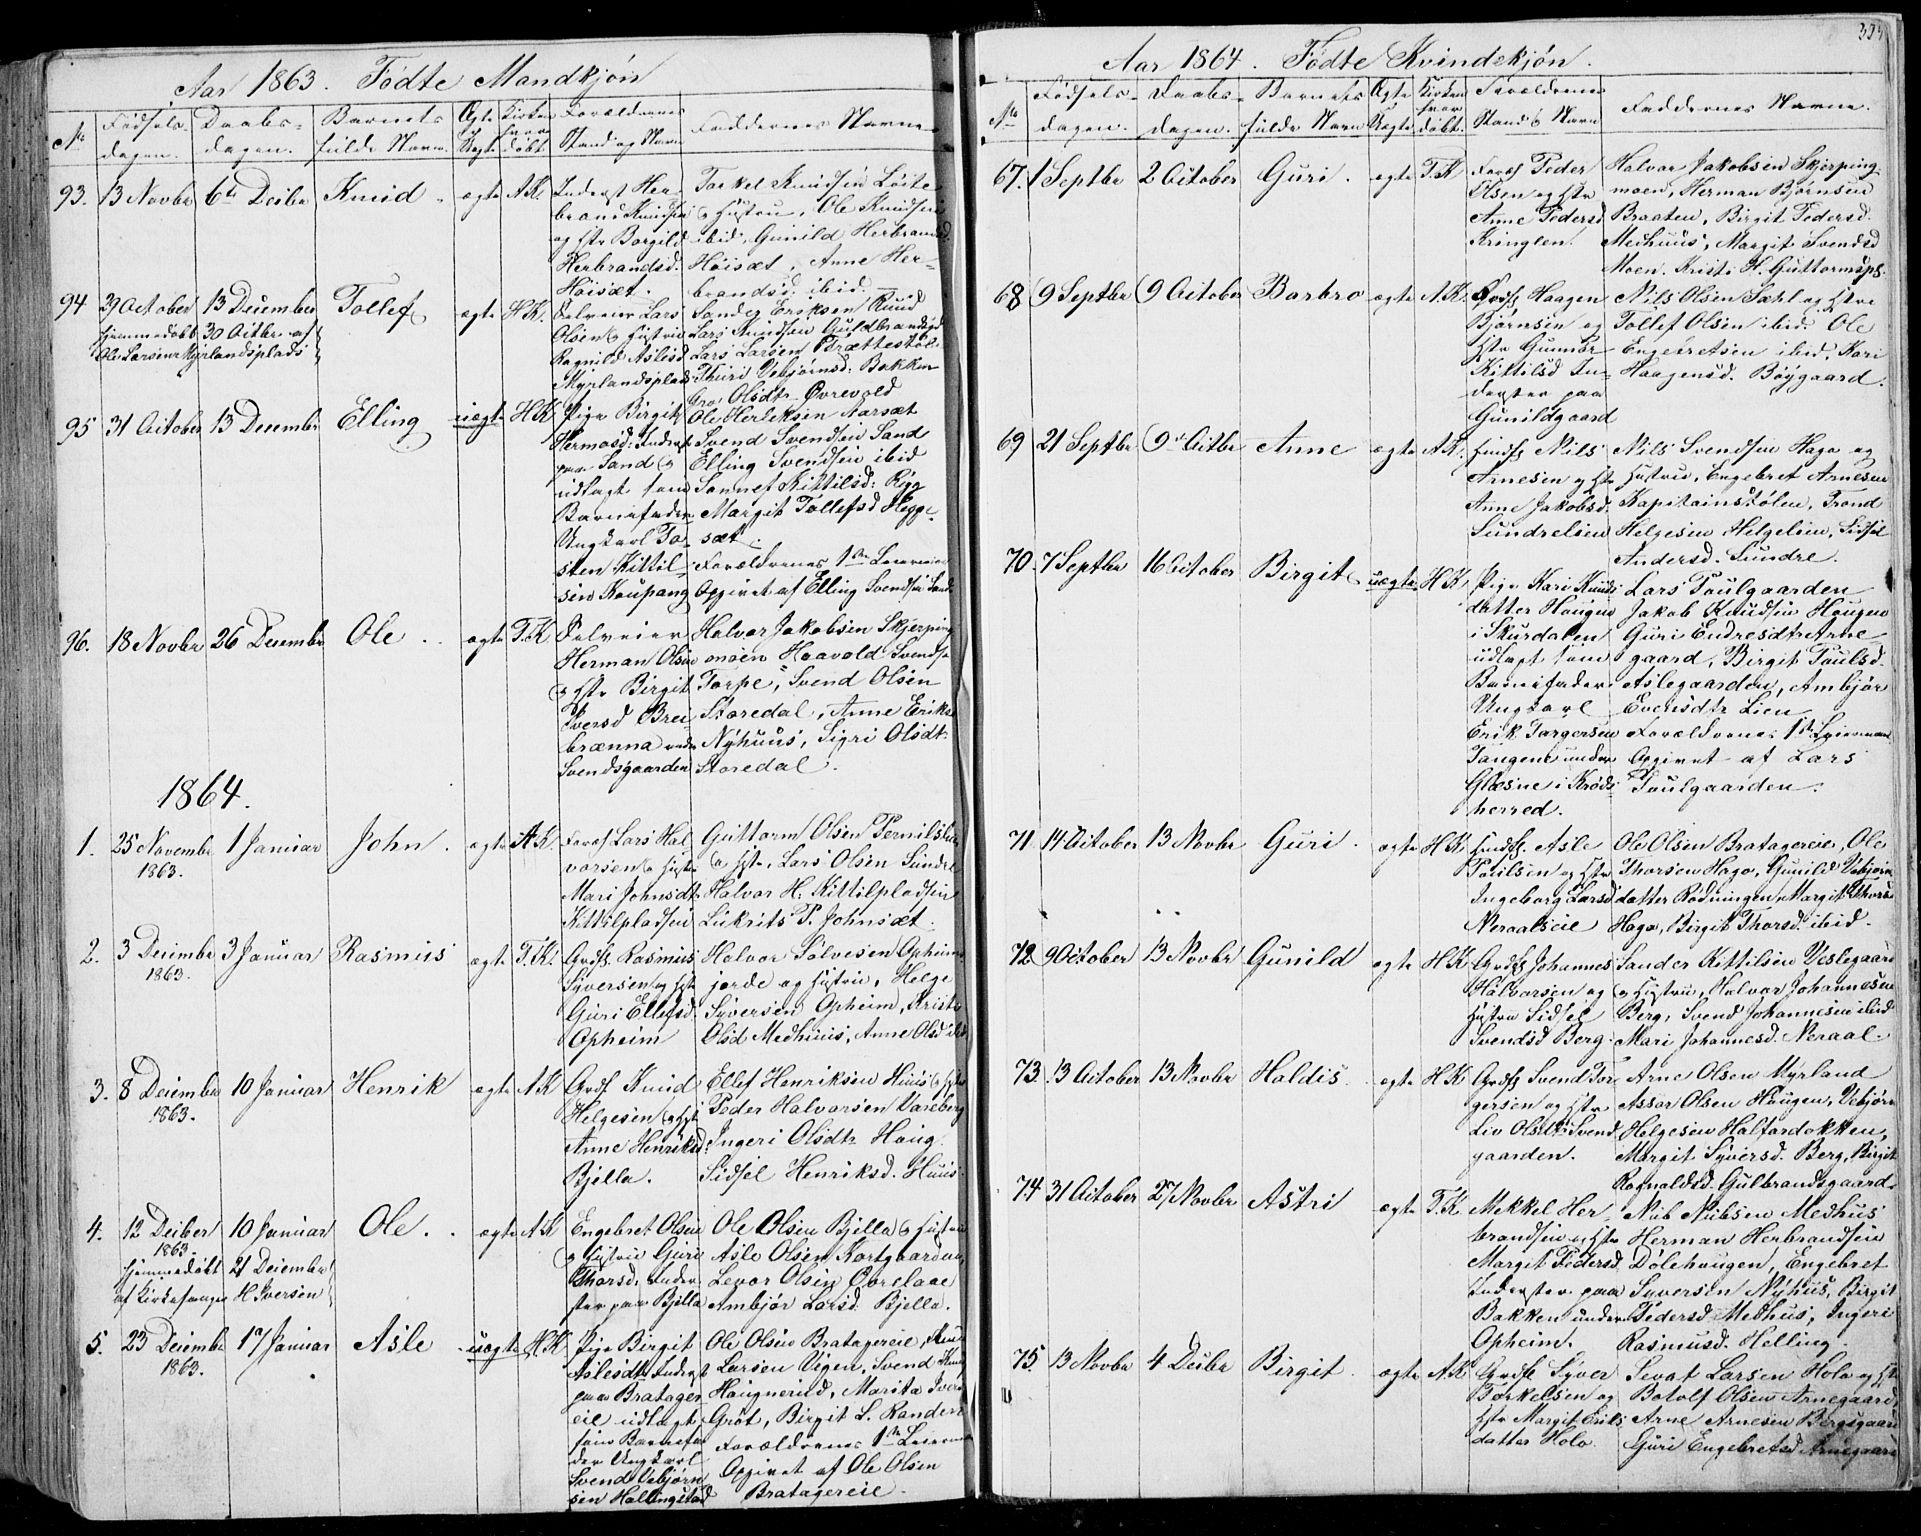 Aar 1863. Fødte Mandkjøn
No
Fødsels-
dagen.
Daabs-
dagen.
Barnets
fulde Navn
Ægte
Uægte
Kirken
hvor
døbt
Forældrenes
Stand og Navn
Faddernes Navne
93. 13 Novbr 6te Decbr Knud ægte A.K.
Inderst Her-
brand Knudsen
og Hstr Borgild
Herbrandsd.
Høisæt.
Torkel Knudsen
Hustru, Ole Knudsen
ibid, Gunild Herbrandsd
Høisæt, Anne Her-
brandsd ibid.
94 29 October 13 December Tollef ægte H.K.
hjemmedøbt 30 Octbr af
Ole Larsen Myrlandsplads
Selveier Lars
Olsen Hustru
Ragnild Aslesd
Myrlandsplads
Sander Eriksen Ruud
Lars Knudsen Guldbrandsgd
Lars Larsen Brættestøl
Thuri Vebjørnsd: Bakken
Olsdtr Øvrevold
95 31 October 13 December Elling uægte H.K
Pige Birgit
Hermosd: Inderst
paa Sand
udlagt som
Barnefader
Ungkarl To-
sten Kittil-
sen Koupang
Ole Herleksen Aarsæt
Svend Svendsen Sand
Elling Svendsen ibid
Sonnef Kittilsd: Rigg
Margit Tollefsd Hegge-
sæt.
Forældrenes 1ste Leiermaal
Opgivet af Elling Svendsen Sand
96. 18 Novbr 26 Decembr Ole. ægte T.K
Selveier
Herman Olsen
Hstr Birgit
Iversd Brei
brænna under
Svendsgaarden
Halvor Jakobsen Skjerping
moen Haavald Svendsen
Torpe, Svend Olsen
Storedal, Anne Eriksd
Nyhuus, Sigri Olsdt.
Storedal.
1864.
1. 25 November 1 Januar John. ægte A.K.
1863.
Lars Hal
vorsen Hustr
Mari Johnsdt
Kittilpladsen
Guttorm Olsen Pernilsh
Hstr, Lars Olsen Sundre
Halvor H. Kittilpladsen
Liukrits P. Johnsæt.
2. 3 Decembr 3 Januar Rasmus ægte T.K.
1863.
Grdf. Rasmus
Syversen og Hst
Guri Ellefsd.
Opheim
Halvor Sølvesen Opheim
jorde og Hustru, Helge
Syversen Opheim, Kristi
Olsd Medhuus, Anne Olsd ibid
3. 8 December 10 Januar Henrik ægte A.K
1863.
Grdf Knud
Helgesen Hst
Anne Henriksd:
Bjella.
Ellef Henriksen Huus
Peder Halvorsen Vareberg
Ingeri Olsdtr Haug
Sidsel Henriksd. Huus.
4. 12 Decber 10 Januar Ole. ægte A.K
1863.
hjemmedøbt 21 December
af Kirkesanger H. Iversen
Engebret Olsen
Hustru Guri
Thorsd: Inder
ster paa Bjella
Ole Olsen Bjella Hustru
Asle Olsen Kortgaarden
Levor Olsen Øvrelaae
Ambjør Larsd Bjella.
5. 23 Decembr 17 Januar Asle uægte H.K
1863.
Pige Birgit
Aslesdtr Inderst
paa Bratager
eie udlagt
som Barnefa
der Ungkarl
Svend Vebjørn
sen Hallingstad
Ole Olsen Brataagereie, Knud
Larsen Vigen, Svend Knuds
Haugnerud, Marita Iversd
Grøt, Birgit L. Randen
Forældrenes 1ste Leiermaal
Opgivet af Ole Olsen
Bratagereie.
Aar 1864. Fødte Kvindekjøn.
No
Fødsels-
dagen.
Daabs-
dagen.
Barnets
fulde Navn
Ægte
Uægte
Kirken
hvor
døbt.
Forældrenes
Stand & Navn
Faddernes Navne.
67. 1 Septbr 2 October Guri. ægte T.K
Peder
Olsen og Hstr
Anne Pedersd
Kringlen.
Halvor Jakobsen Skjerping
moen, Herman Bjørnsen
Braaten, Birgit Pedersd.
Medhuus, Margit Svendsd
Moen. Kristi H. Guttormspl.
68 9 Septbr 9 October Barbro ægte A.K
Grdf. Haagen
Bjørnsen og
Hstr Gunnor
Kittilsd In-
derster paa
Gunildgaard
Nils Olsen Sæhl og Hstru
Tollef Olsen ibid Ole
Engebretsen ibid, Kari
Haagensd. Bøygaard.
69 21 Septbr 9 Octbr Anne ægte A.K.
Husf Nils
Arnesen og Hst
Anne Jakobsd.
Sundreleien
Nils Svendsen Haga og
Hustru, Engebret Arnesen
Kapitainstølen, Trond
Helgesen Helgeleien, Sidsel
Andersd. Sundre.
70. 7 Septbr 16 October Birgit uægte H.K
Pige Kari Knuds
datter Haugen
i Skurdalen
udlagt som
Barnefader
Ungkarl
Erik Torgersen
Tangen under
Glesne i Krøds-
herred.
Lars Poulgaarden
Jakob Knudsen Haugen
Guri Endresdtr Arne
gaard, Birgit Poulsd.
Aslegaarden, Ambjør
Evensdtr Lien
Forældrenes 1ste Leiermaal
Opgivet af Lars
Poulgaarden.
71. 14 October 13 Novbr Guri. ægte H.K
Husf. Asle
Poulsen og Hstr
Ingeborg Larsd
Neraalseie
Ole Olsen Bratagereie, Ole
Thorsen Haga, Gunild Vebjørns
datter Rødningen, Margit Thorsd
Haga, Birgit Thorsd. ibid.
72. 9 October 13 Novbr Gunild ægte H.K
Grdf Johannes
Halvorsen og
Hustru Sidsel
Svendsd Berg.
Sander Kittilsen Veslegaard
Hustru, Halvor Johannesen
Berg, Svend Johannesen ibid
Mari Johannesd. Neraal.
73. 13 October 13 Novbr Haldis. ægte H.K
Grdf Svend Tor
gersen og Hstr
Liv Olsdtr Svend
gaarden.
Arne Olsen Myrland
Assor Olsen Haugen, Vebjørn
Helgesen Halfardokken,
Margit Syversd. Berg, Birgit
Ragnaldsd. Gulbrandsgaard.
74 31 October 27 Novbr Astri ægte T.K
Mekkel Her
brandsen og Hstr
Margit Pedersd.
Inderster paa
Bakken under
Opheim.
Nub Nubsen Medhus
Herman Herbrandsen
Dølehaugen, Engebret
Syversen Nyhus, Birgit
Pedersd Medhus, Ingeri
Rasmusd. Helling.
75. 13 Novbr 4 Decbr Birgit. ægte A.K
Grdf Syver
Torkelsen og
Hstr Margit Eriks
datter Holo.
Sevat Larsen Holo og Hst
Botolf Olsen Arnegaard,
Arne Arnesen Bergsgaard
Guri Engebretsd Arnegaard